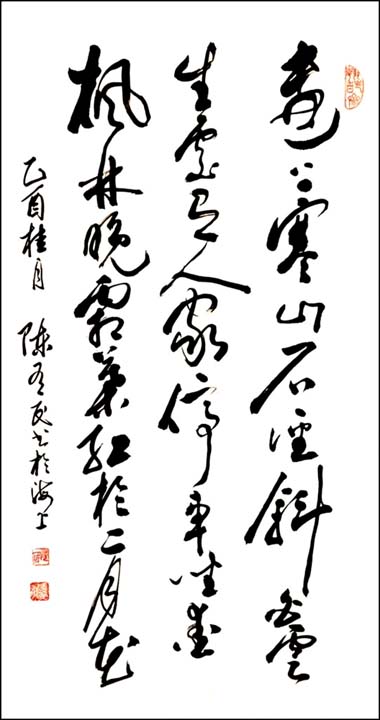 遠上寒山石徑斜白雲
生處有人家停車坐愛
楓林晚霜葉紅於二月花
乙酉桂月 陳民書於海上